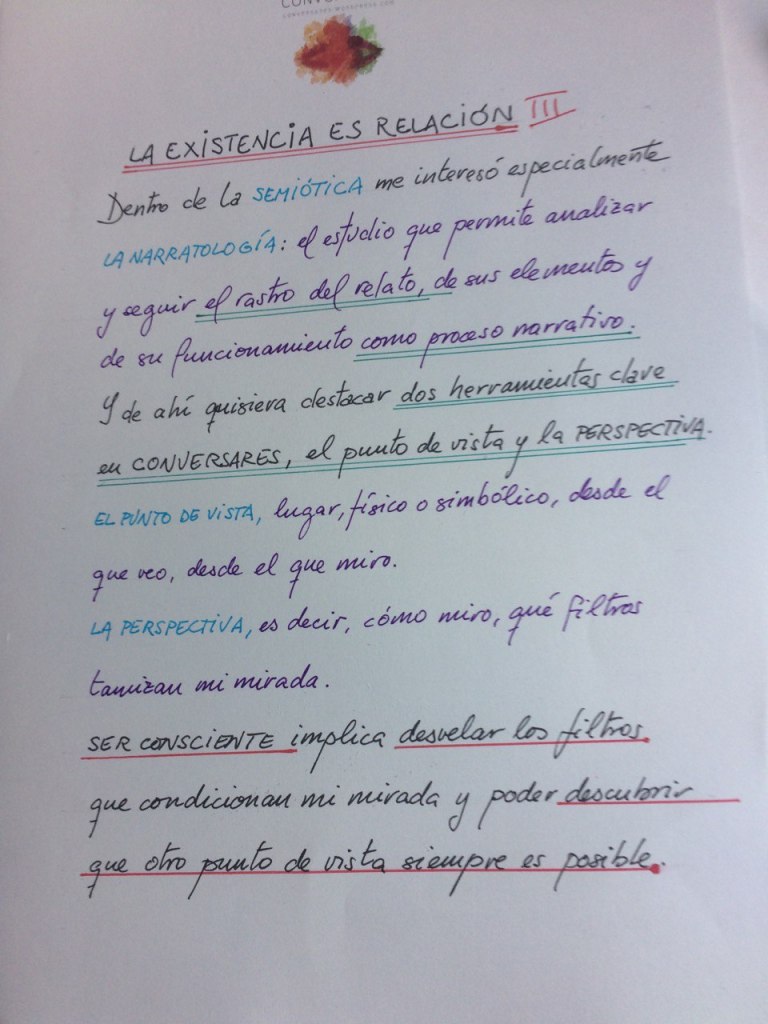 LA EXISTENCIA ES RELACIÓN III
Dentro de la SEMIÓTICA me interesó especialmente
LA NARRATOLOGÍA: el estudio que permite analizar
y seguir el rastro del relato, de sus elementos y
de su funcionamiento como proceso narrativo.
Y de ahí quisiera destacar dos herramientas clave
en CONVERSARES, el punto de vista y la PERSPECTIVA.
EL PUNTO DE VISTA, lugar, físico o simbólico, desde el
que veo, desde el que miro.
LA PERSPECTIVA, es decir, cómo miro, qué filtros
tamizan mi mirada.
SER CONSCIENTE implica desvelar los filtros
que condicionan mi mirada y poder descubrir
que otro punto de vista siempre es posible.